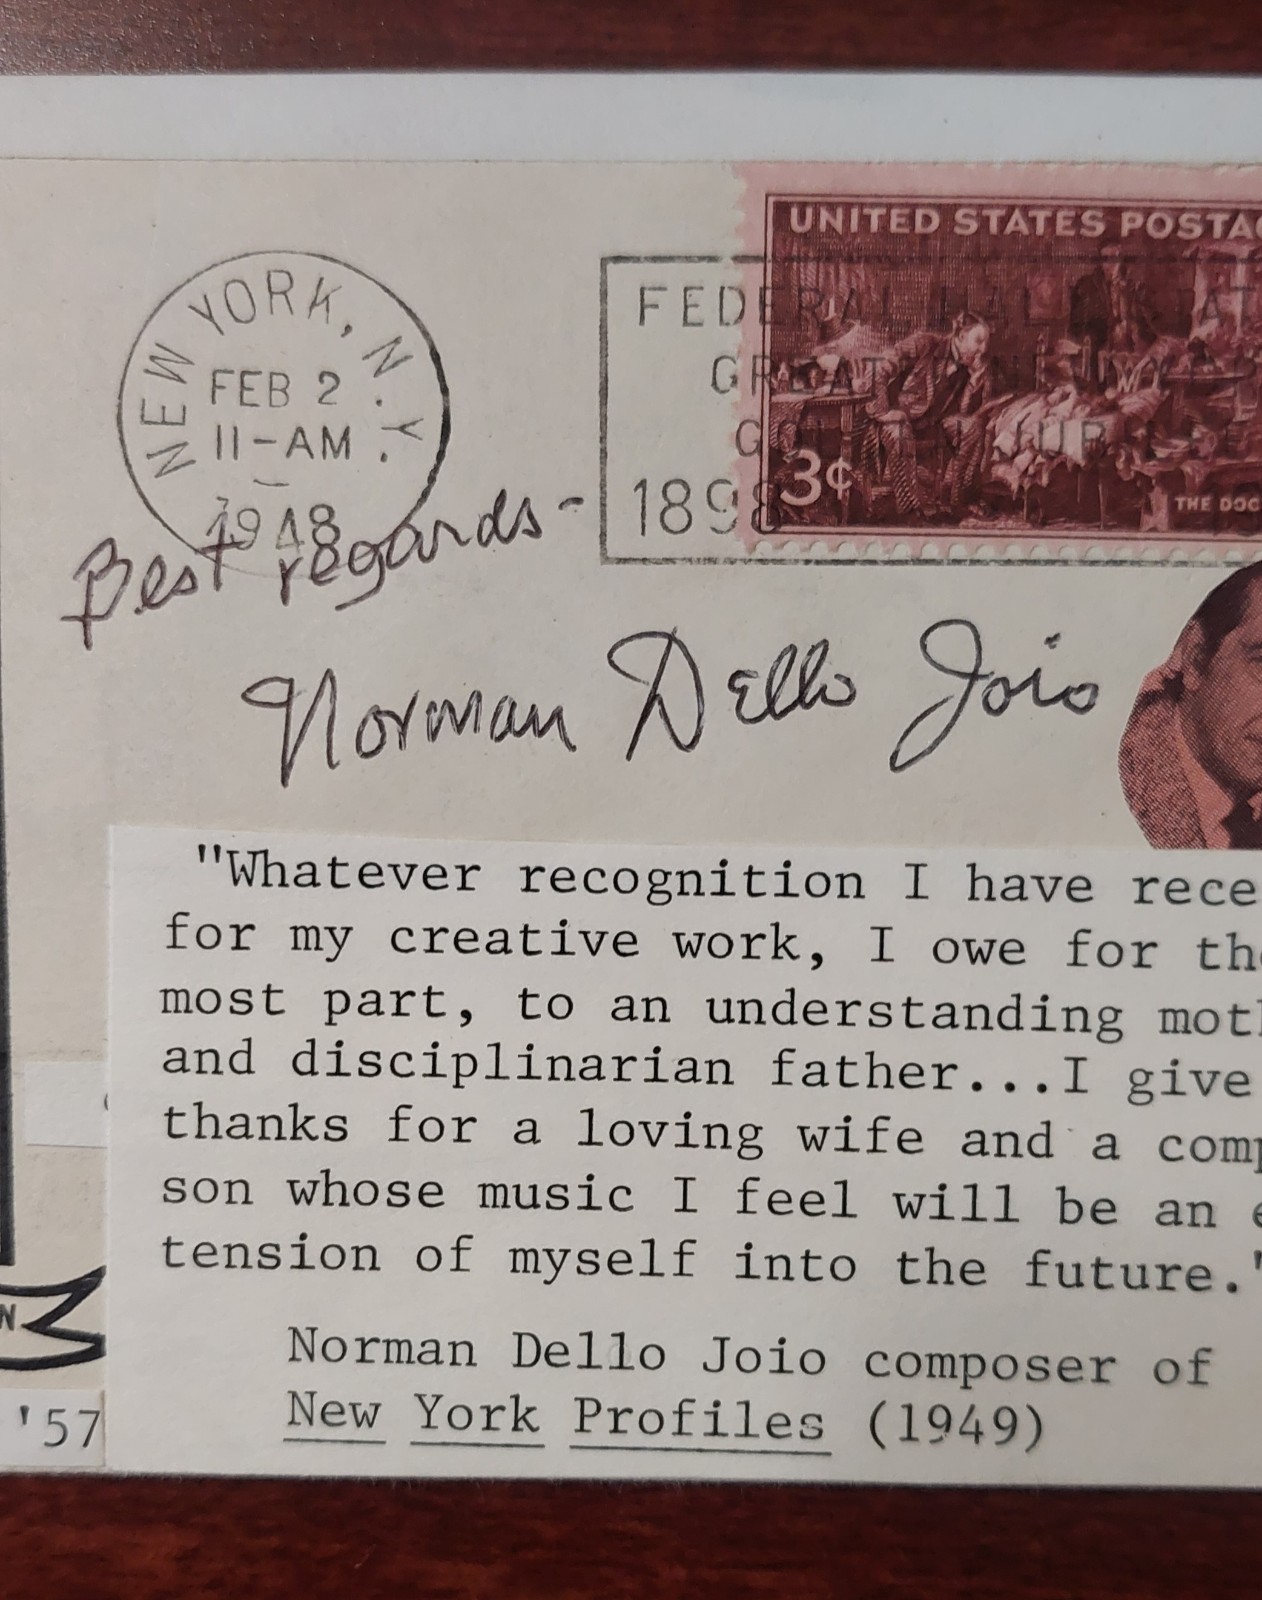 UNITED STATES POSTAG
NEW YORK, N.Y.
FEB 2
11-AM
1948
FEDERAL HALL STAT
GREATER NEW YOR
GOLDEN JUBILEE
1898
3¢
THE DOC
Best regards-
Norman Dello Joio
"Whatever recognition I have rece
for my creative work, I owe for the
most part, to an understanding moth
and disciplinarian father...I give
thanks for a loving wife and a comp
son whose music I feel will be an e
tension of myself into the future."
Norman Dello Joio composer of
New York Profiles (1949)
N
'57